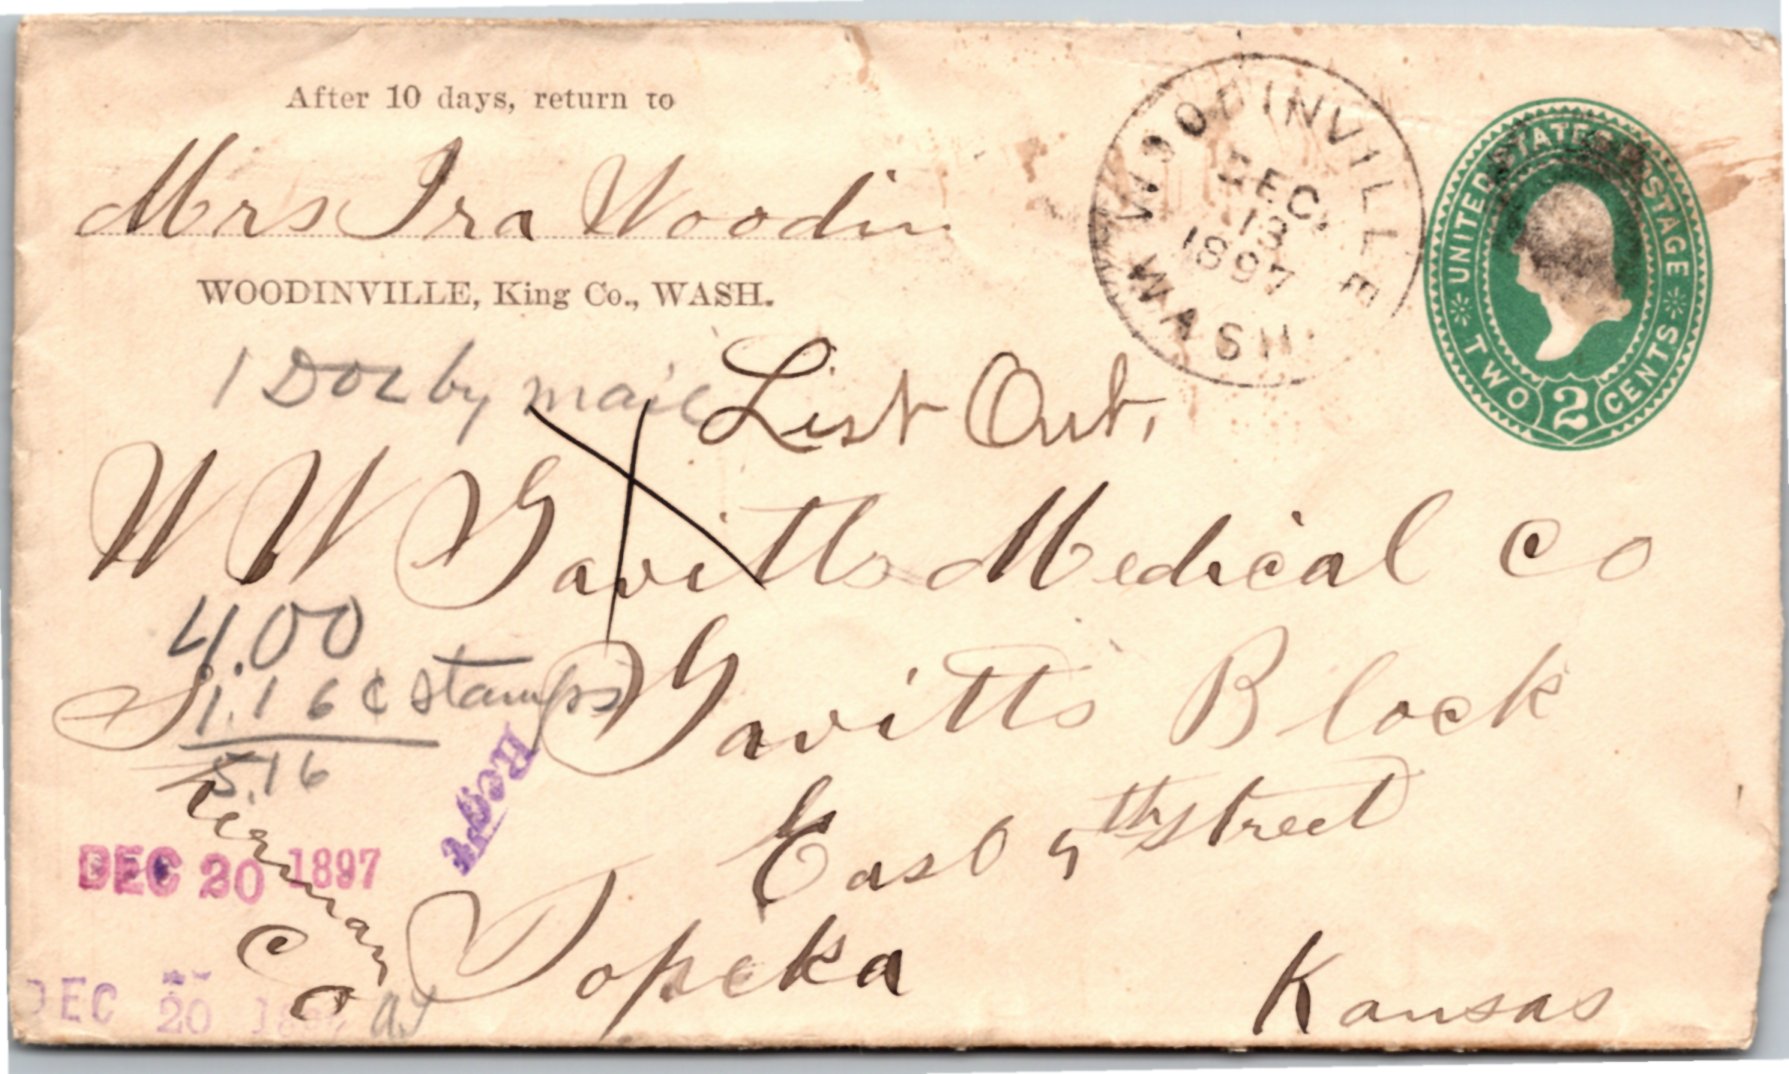 After 10 days, return to
Mrs Ira Woodin
WOODINVILLE, King Co., WASH.
WOODINVILLE
DEC
13
1897
WASH.
UNITED STATES POSTAGE
TWO 2 CENTS
1 Doz by mail
List Out,
W W Gavitts Medical Co
4.00
1.16 ¢ stamps
5.16
Gavitts Block
Recd
East 5th street
DEC 20 1897
Topeka
Co
Kansas
DEC 20 189